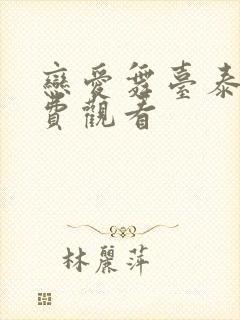 戀愛舞臺泰
費觀看
林麗萍